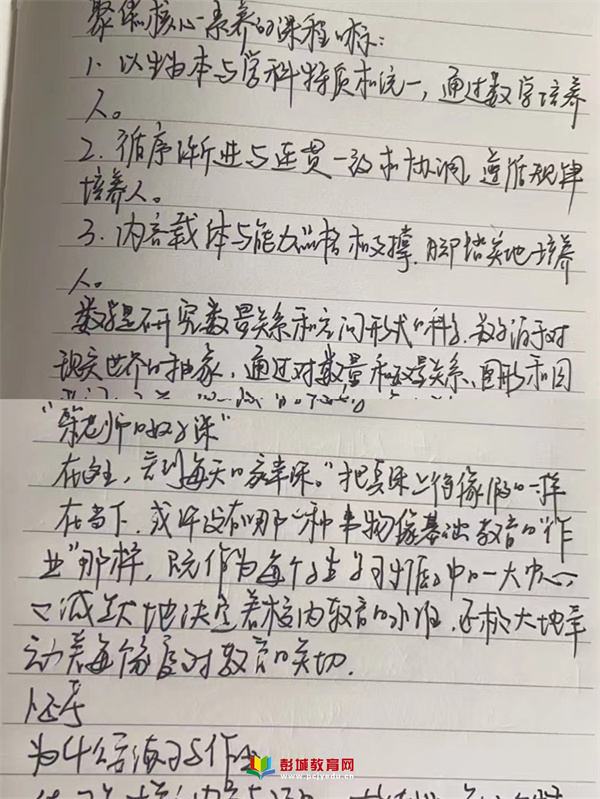 聚焦核心素养的课程目标:
1. 以生为本与学科特质相统一,通过数学培养
人。
2. 循序渐进与连贯一致相协调,遵循规律
培养人。
3. 内容载体与能力品格相支撑,脚踏实地培养
人。
数学是研究数量关系和空间形式的科学。数学源于对
现实世界的抽象,通过对数量和数量关系、图形和图
老师的好课"
每天的家常课。"把真课上得像假的一样
在当下,或许没有哪一种事物像基础教育的"作
业"那样,既作为每个学生学习生活中的一大中心
地决定着校内教育的水准,还极大地牵
动着每个家庭对教育的关切。
为什么
彭城教育网
www.pcjyedu.cn